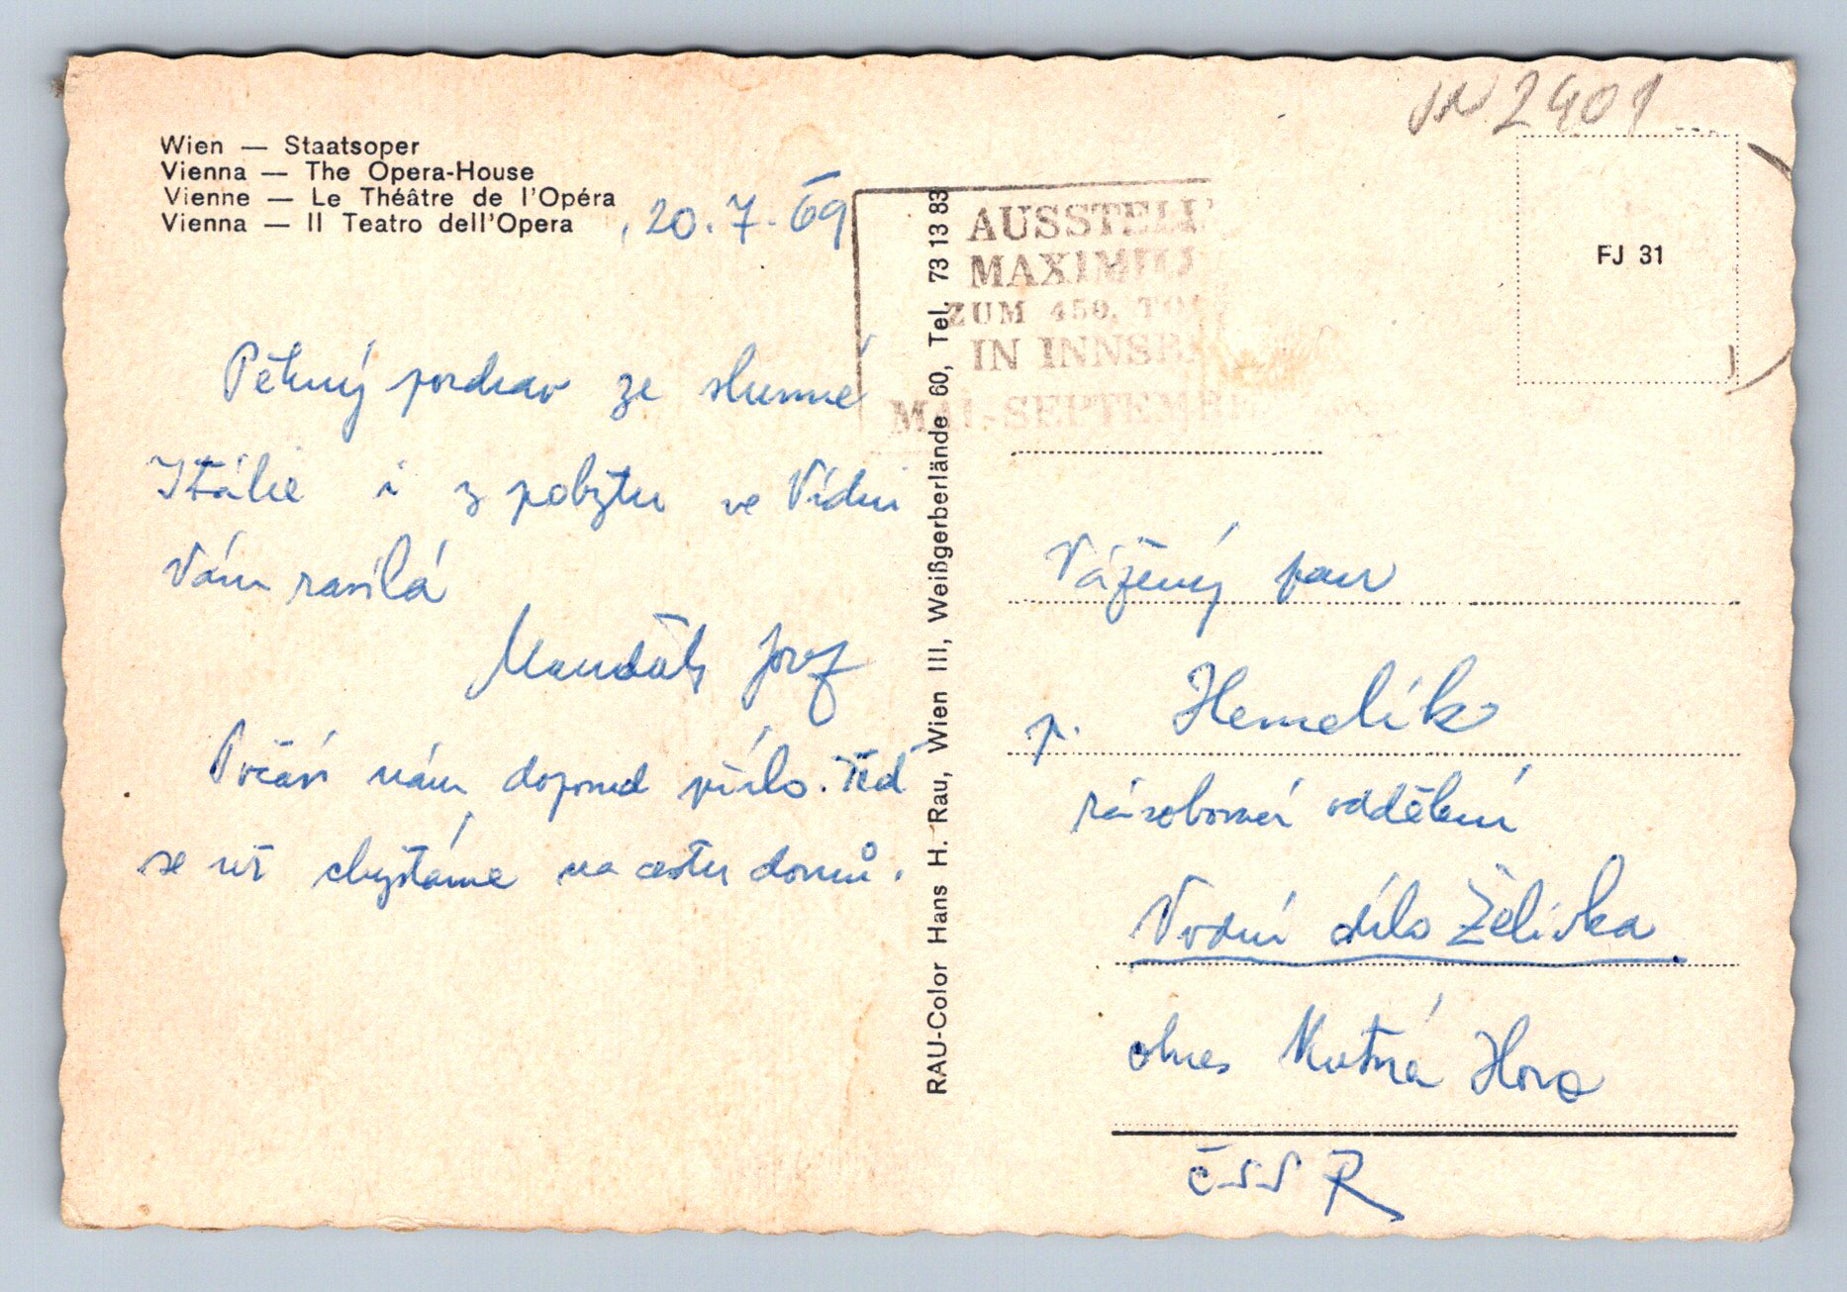 VN 2401
Wien — Staatsoper
Vienna — The Opera-House
Vienne — Le Théâtre de l'Opéra
Vienna — Il Teatro dell'Opera
, 20. 7. 69
AUSSTELL
MAXIMILI
ZUM 450. TO
IN INNSB
MAI-SEPTEMBE
FJ 31
Pěkný pozdrav ze slunné
Itálie i z pobytu ve Vídni
Vám zasílá
Josef
Počasí nám doposud přálo. Teď
se už chystáme na cestu domů.
RAU-Color Hans H. Rau, Wien III, Weißgerberlände 60, Tel. 73 13 83
Vážený pan
p. Hemelík
zásobovací oddělení
Vodní dílo Želivka
okres Kutná Hora
ČSSR